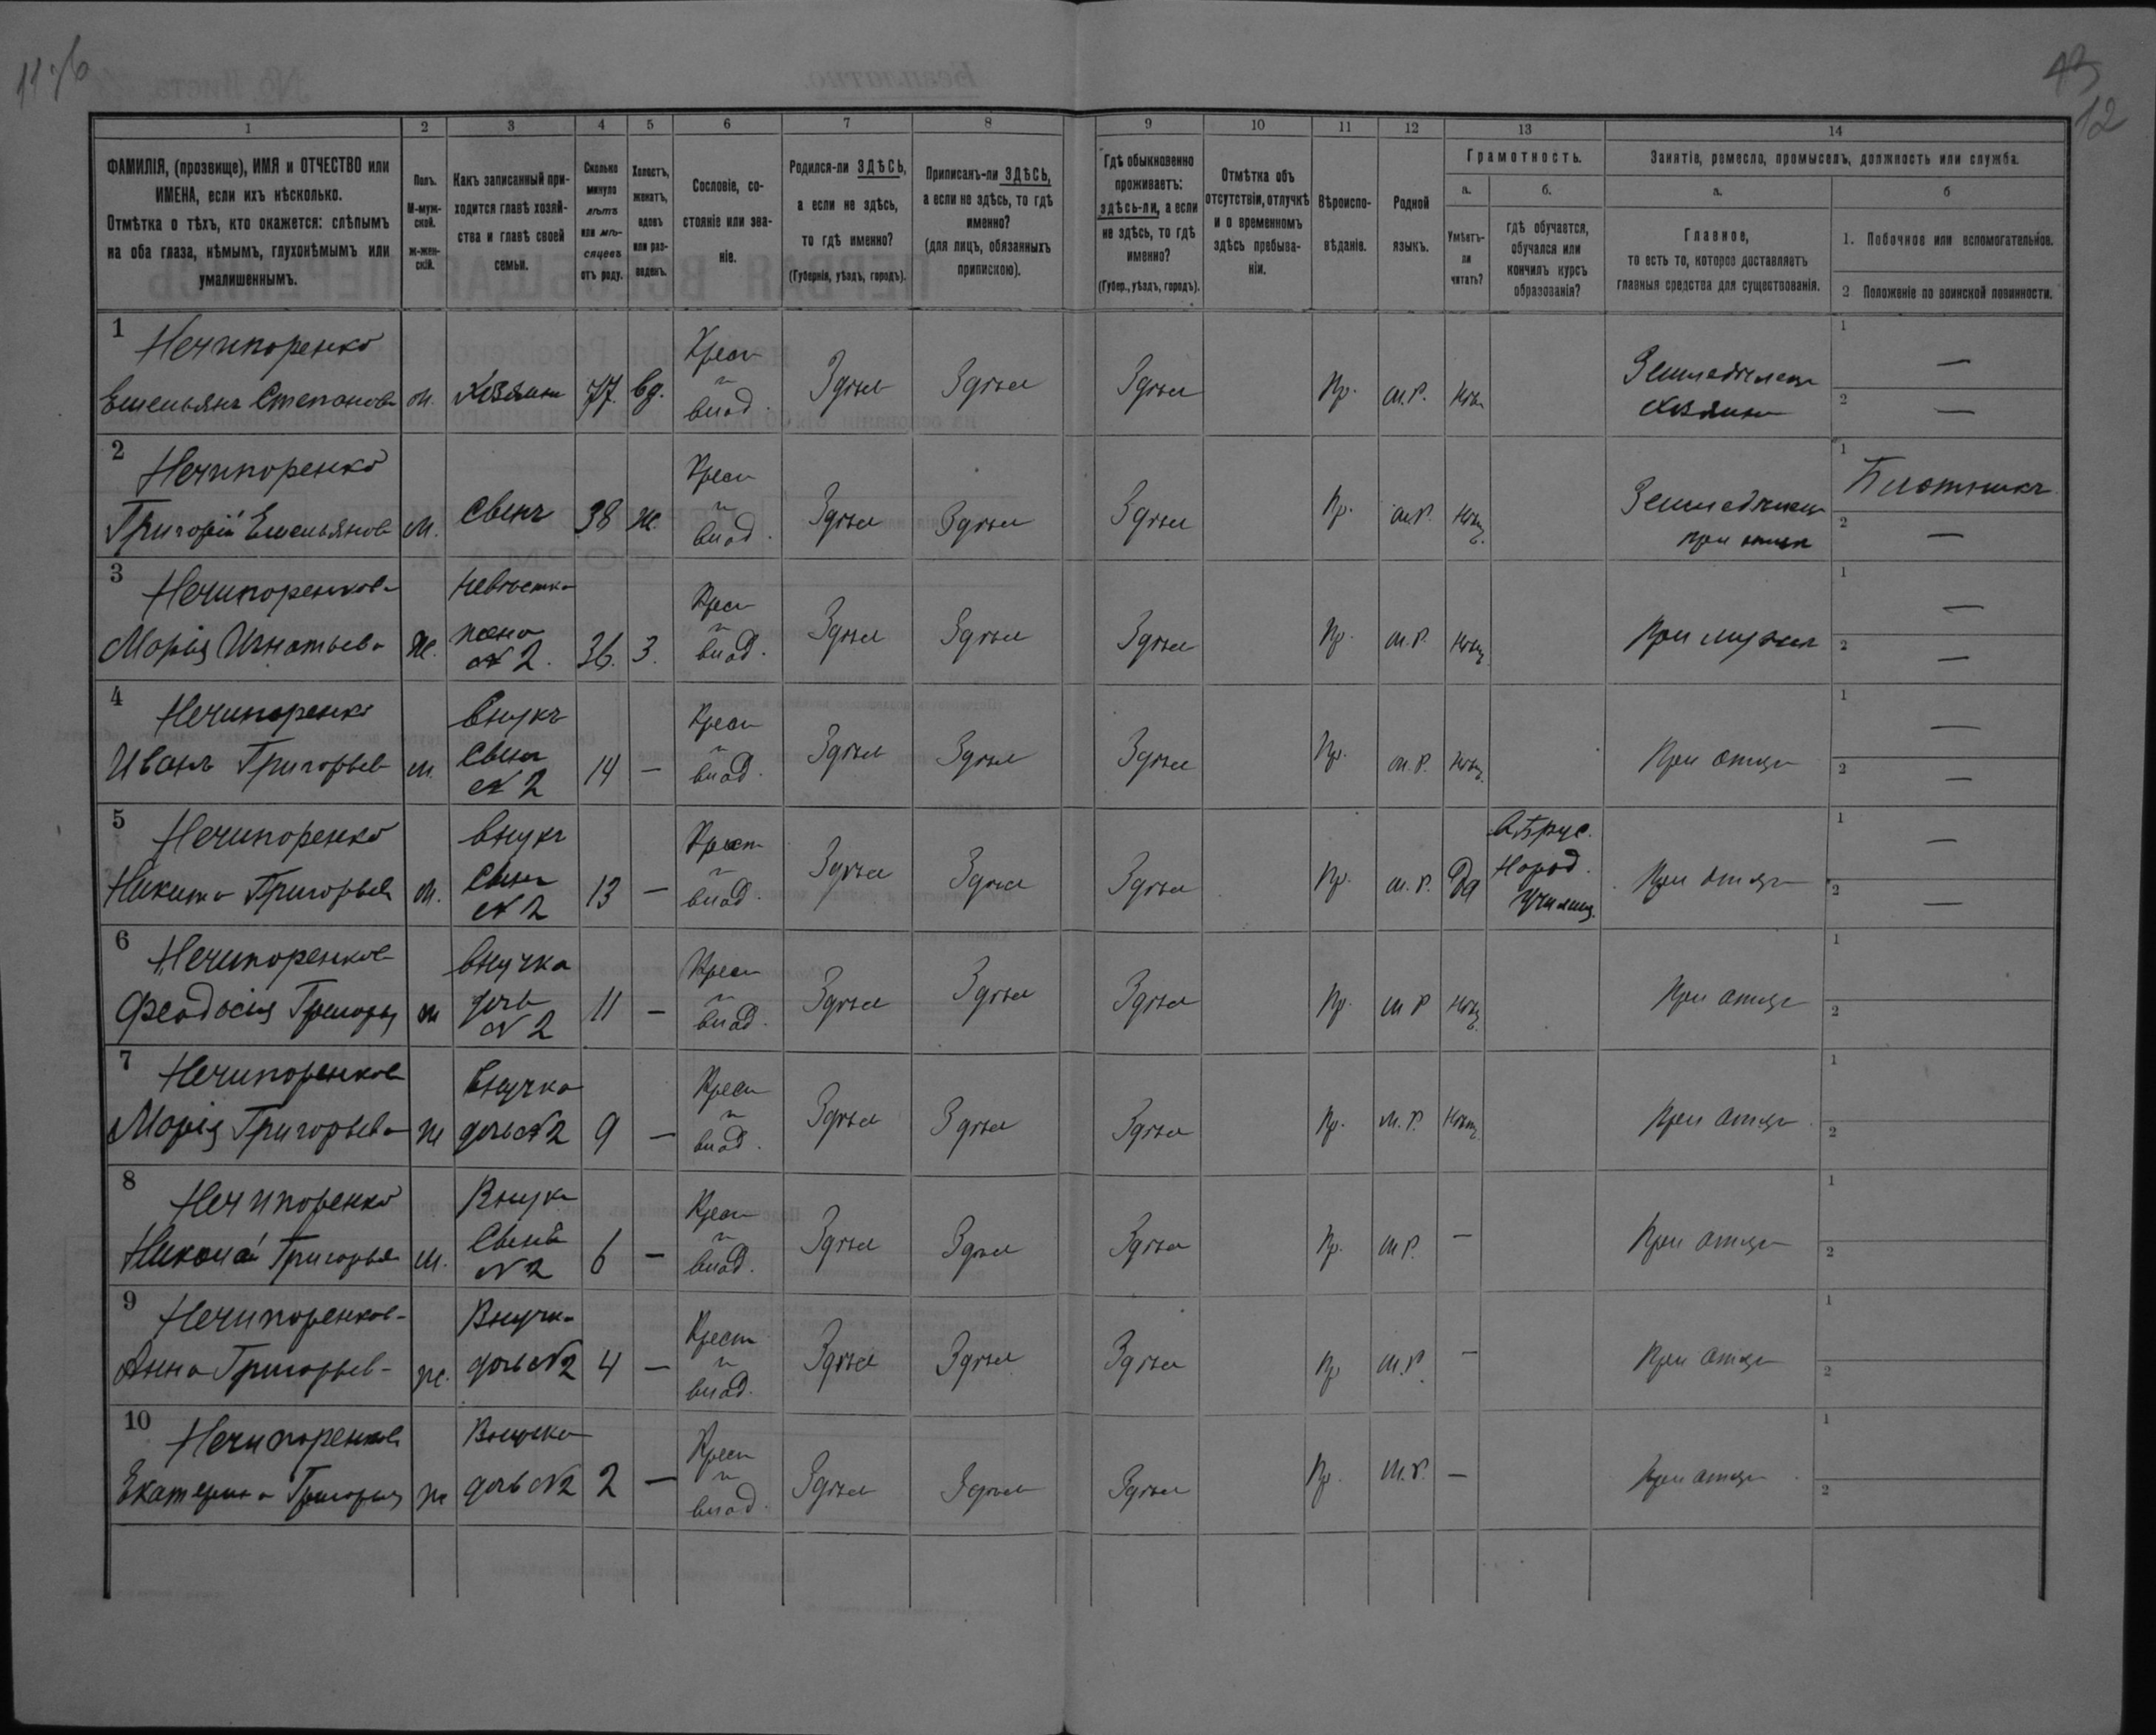 12
1 2 3 4 5 6 7 8 9 10 11 12 13 14
ФАМИЛІЯ, (прозвище), ИМЯ и ОТЧЕСТВО или
ИМЕНА, если ихъ нѣсколько.
Отмѣтка о тѣхъ, кто окажется: слѣпымъ
на оба глаза, нѣмымъ, глухонѣмымъ или
умалишеннымъ.
Полъ.
М-муж-
ской.
ж-жен-
скій.
Какъ записанный при-
ходится главѣ хозяй-
ства и главѣ своей
семьи.
Сколько
минуло
лѣтъ
или мѣ-
сяцевъ
отъ роду.
Холостъ,
женатъ,
вдовъ
или раз-
веденъ.
Сословіе, со-
стояніе или зва-
ніе.
Родился-ли ЗДѢСЬ,
а если не здѣсь,
то гдѣ именно?
(Губернія, уѣздъ, городъ).
Приписанъ-ли ЗДѢСЬ,
а если не здѣсь, то гдѣ
именно?
(для лицъ, обязанныхъ
припискою).
Гдѣ обыкновенно
проживаетъ:
здѣсь-ли, а если
не здѣсь, то гдѣ
именно?
(Губер., уѣздъ, городъ).
Отмѣтка объ
отсутствіи, отлучкѣ
и о временномъ
здѣсь пребыва-
ніи.
Вѣроиспо-
вѣданіе.
Родной
языкъ.
Грамотность.
а.
Умѣетъ-
ли
читать?
б.
гдѣ обучается,
обучался или
кончилъ курсъ
образованія?
Занятіе, ремесло, промыселъ, должность или служба.
а.
Главное,
то есть то, которое доставляетъ
главныя средства для существованія.
б
1. Побочное или вспомогательное.
2 Положеніе по воинской повинности.
1 Нечипоренко
Емельянъ Степановъ м. Хозяинъ 77. вд. Крест. и влад. Здѣсь Здѣсь Здѣсь Пр. м.р. Нѣтъ Земледѣлецъ
Хозяинъ 1 — 2 —
2 Нечипоренко
Григорій Емельяновъ м. Сынъ 38 ж Крест. и влад. Здѣсь Здѣсь Здѣсь Пр. м.р. Нѣтъ Земледѣлецъ
при отцѣ 1 Плотникъ 2 —
3 Нечипоренкова Невѣстка
Марія Игнатьева ж. жена № 2. 36. З. Крест. и влад. Здѣсь Здѣсь Здѣсь Пр. м.р. Нѣтъ При мужѣ 1 — 2 —
4 Нечипоренко Внукъ
Иванъ Григорьев м. Сынъ № 2 14 — Крест. и влад. Здѣсь Здѣсь Здѣсь Пр. м.р. Нѣтъ При отцѣ 1 — 2 —
5 Нечипоренко Внукъ
Никита Григорьев м. Сынъ № 2 13 — Крест. и влад. Здѣсь Здѣсь Здѣсь Пр. м.р. Да
Народ.
Училищ.
При отцѣ 1 — 2 —
6 Нечипоренков Внучка
Феодосія Григорьев ж дочь № 2 11 — Крест. и влад. Здѣсь Здѣсь Здѣсь Пр. м р Нѣтъ При отцѣ 1 2
7 Нечипоренков Внучка
Марія Григорьева ж дочь № 2 9 — Крест. и влад. Здѣсь Здѣсь Здѣсь Пр. м.р. Нѣтъ При отцѣ 1 2
8 Нечипоренко Внукъ
Николай Григорьев м. Сынъ № 2 6 — Крест. и влад. Здѣсь Здѣсь Здѣсь Пр. м р. — При отцѣ 1 2
9 Нечипоренков Внучка
Анна Григорьев ж. дочь № 2 4 — Крест. и влад. Здѣсь Здѣсь Здѣсь Пр м.р. — При отцѣ 1 2
10 Нечипоренков Внучка
Екатерина Григорьев ж дочь № 2 2 — Крест. и влад. Здѣсь Здѣсь Здѣсь Пр. м.р. — При отцѣ 1 2